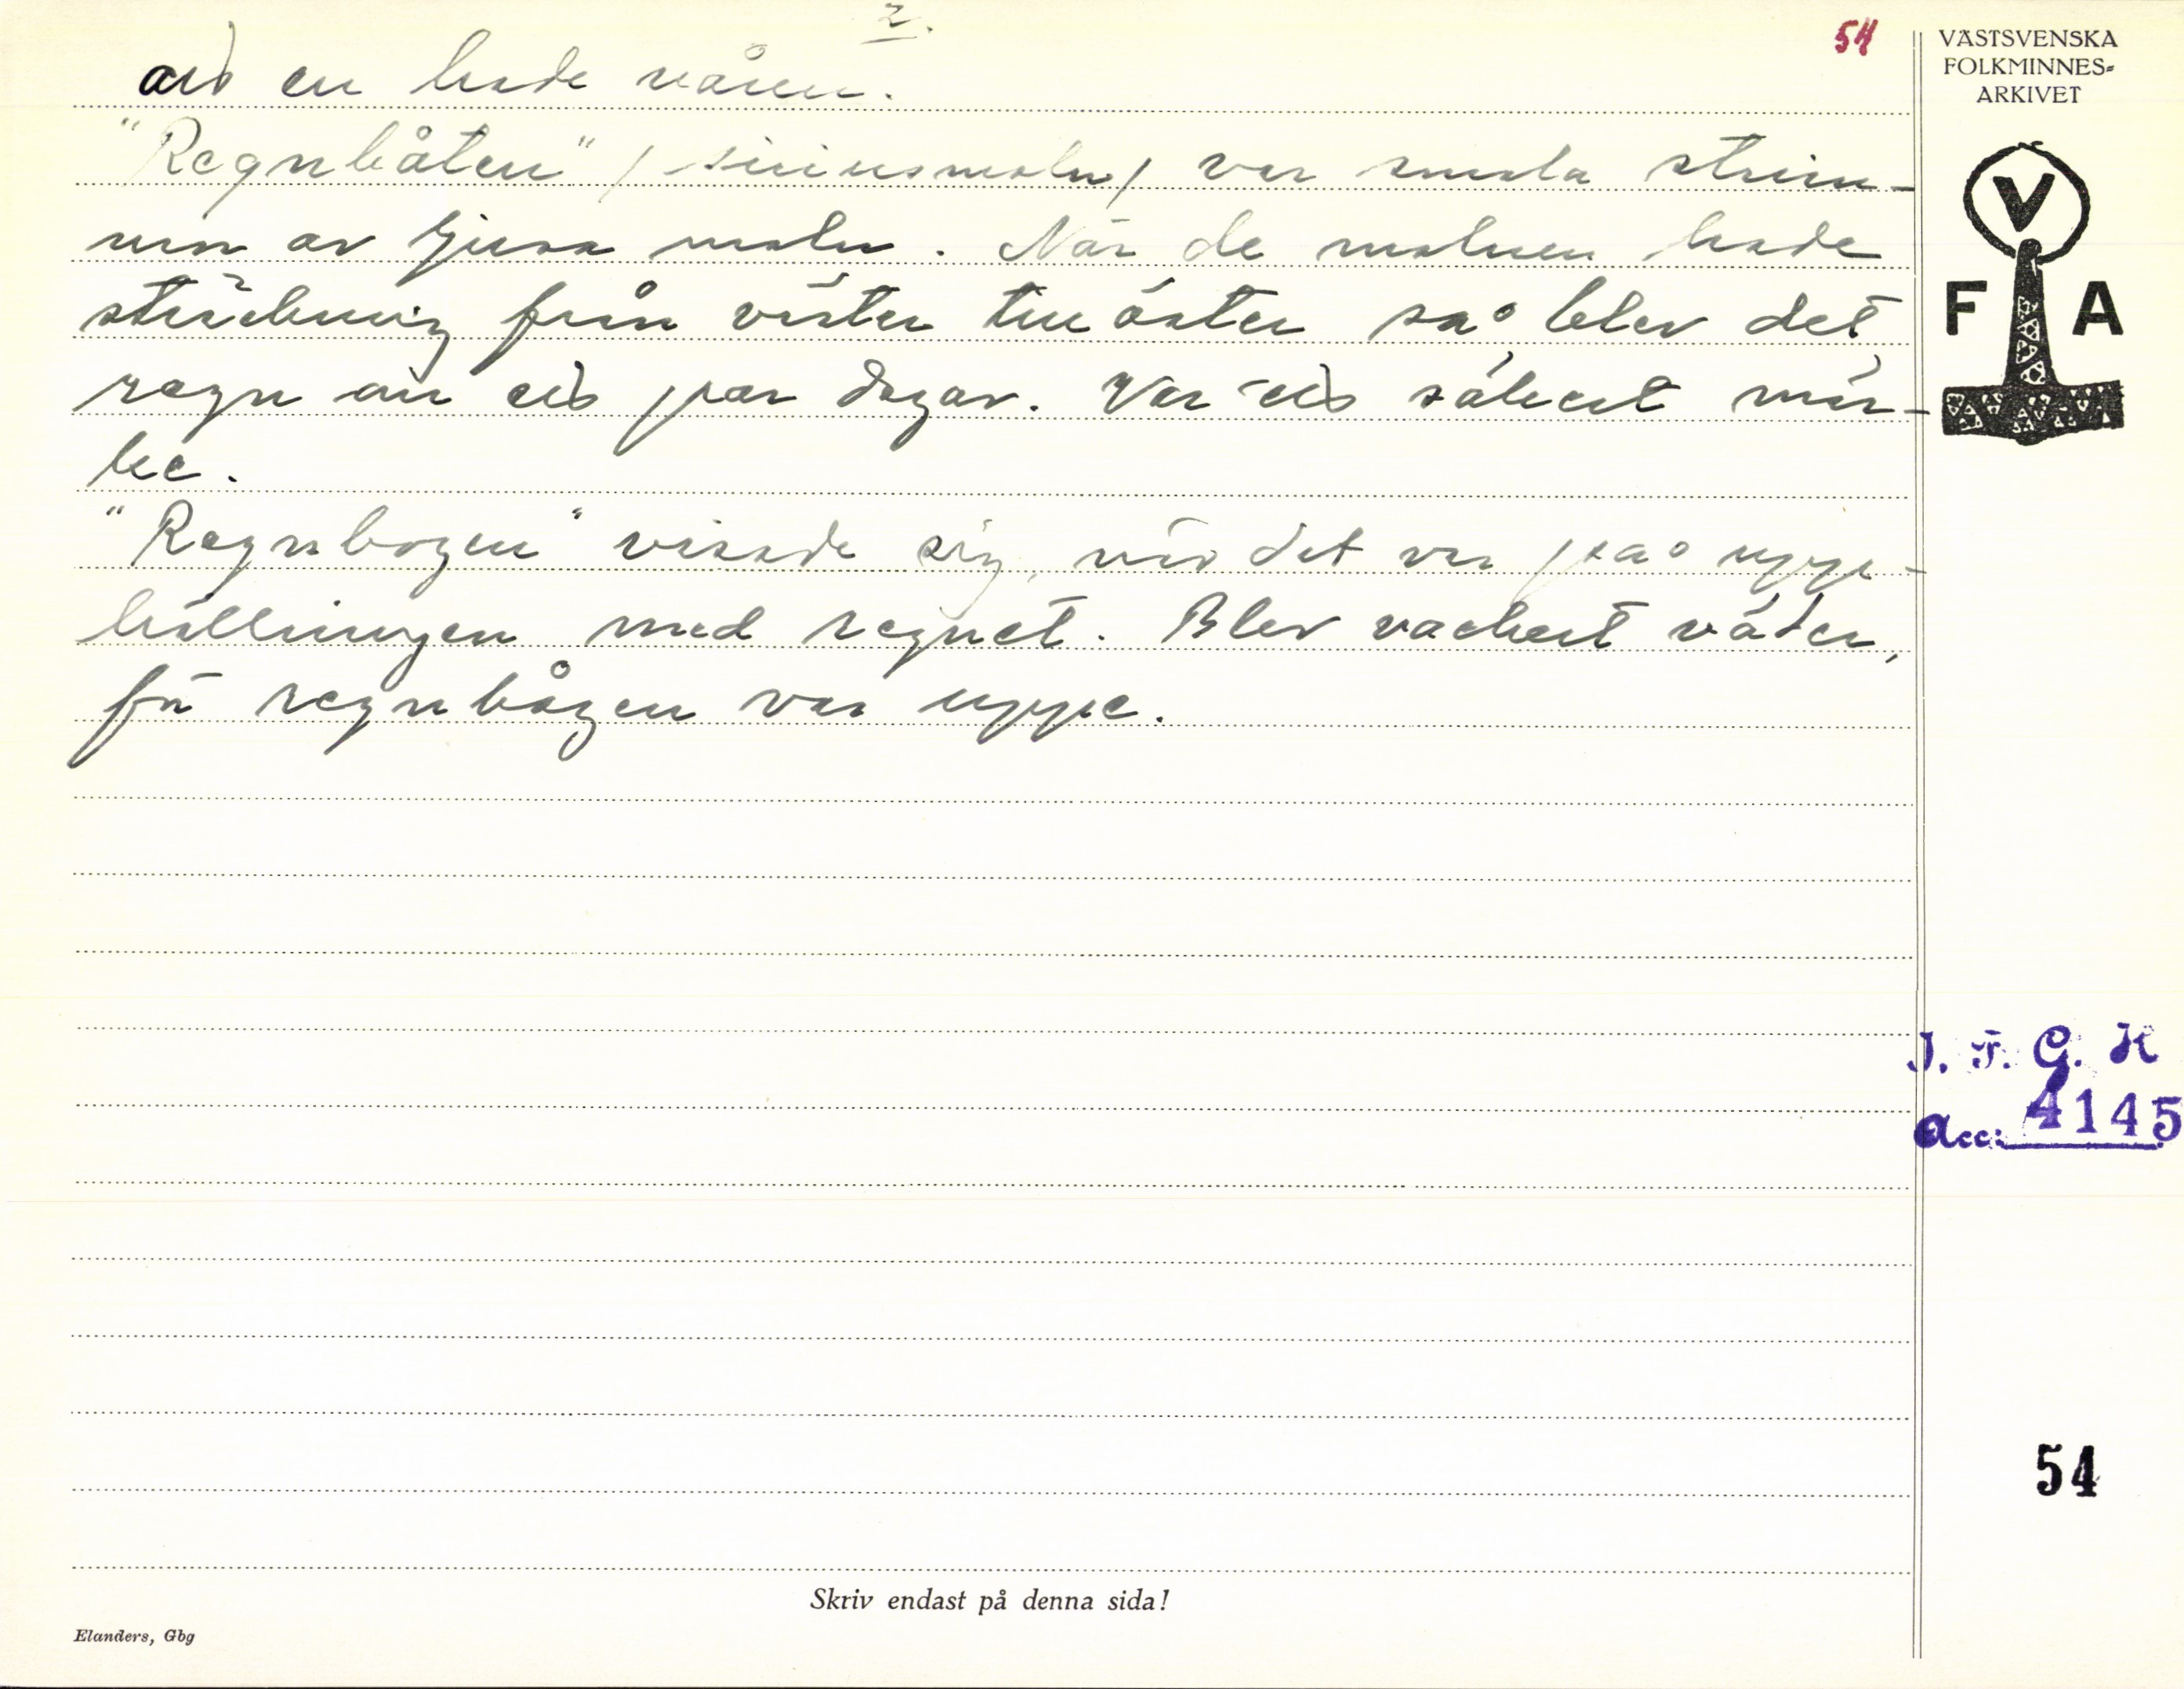 2.
54
VÄSTSVENSKA
FOLKMINNES-
ARKIVET
en hade våren.
"Regnbåten" /sirius moln/ var smala strim-
mor av ljusa moln. När de molnen hade
sträckning från väster till öster så blev det
regn om ett par dagar. Var ett säkert mär-
ke.
"Regnbogen" visade sig, när det var på uppe-
hållningen med regnet. Blev vackert väder,
för regnbågen var uppe.
V
F A
I. F. G. H
Acc: 4145
54
Skriv endast på denna sida!
Elanders, Gbg